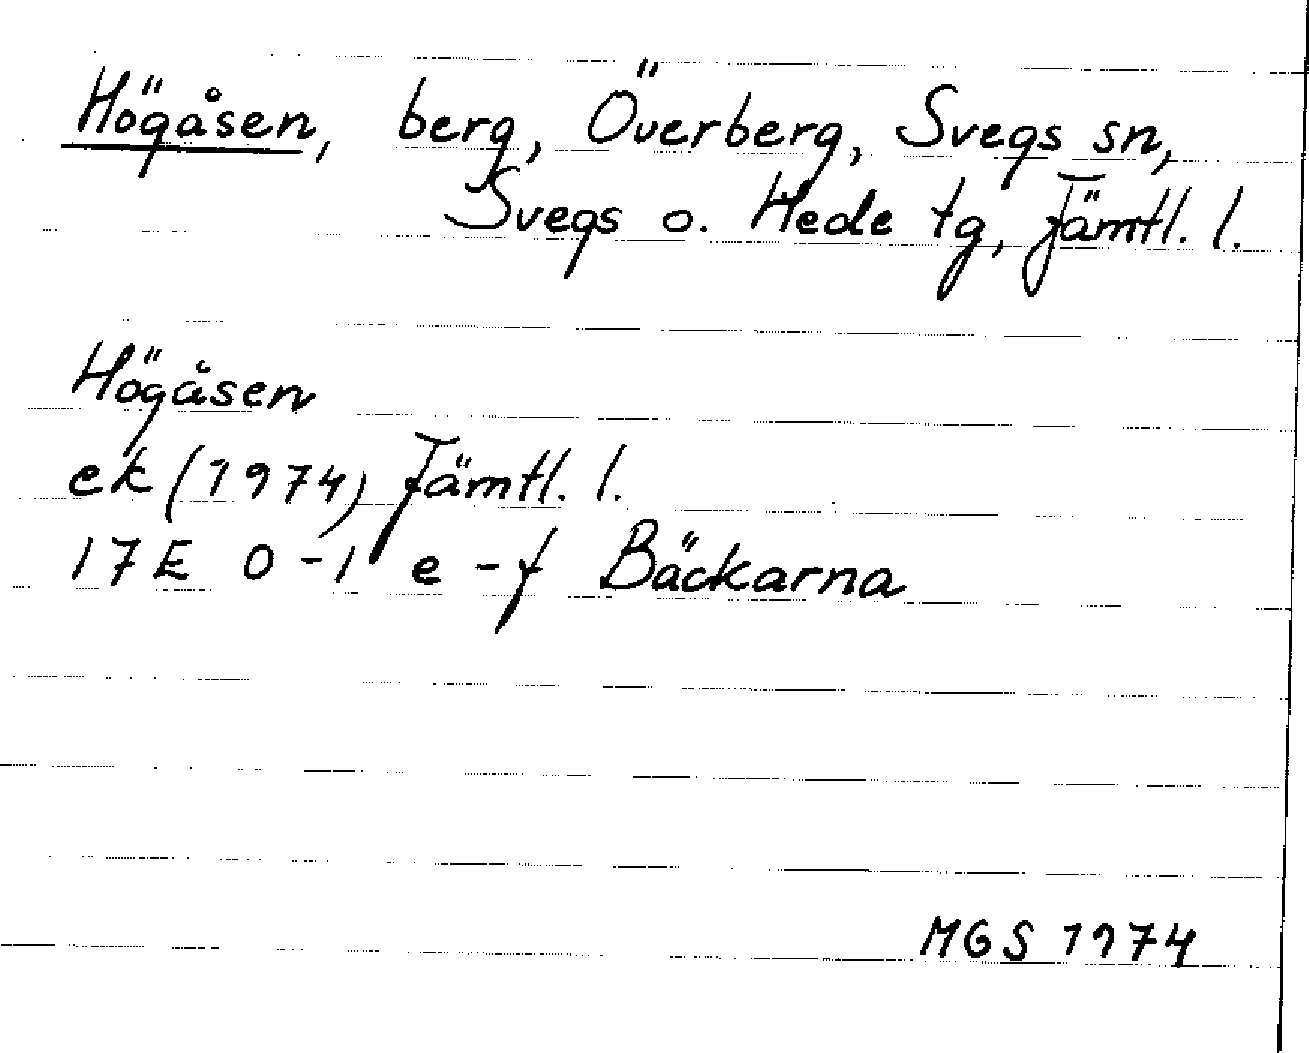 Högåsen, berg, Överberg, Svegs sn,
Svegs o. Hede tg, Jämtl. l.
Högåsen
ek (1974) Jämtl. l.
17E 0-1 e-f Bäckarna
MGS 1974